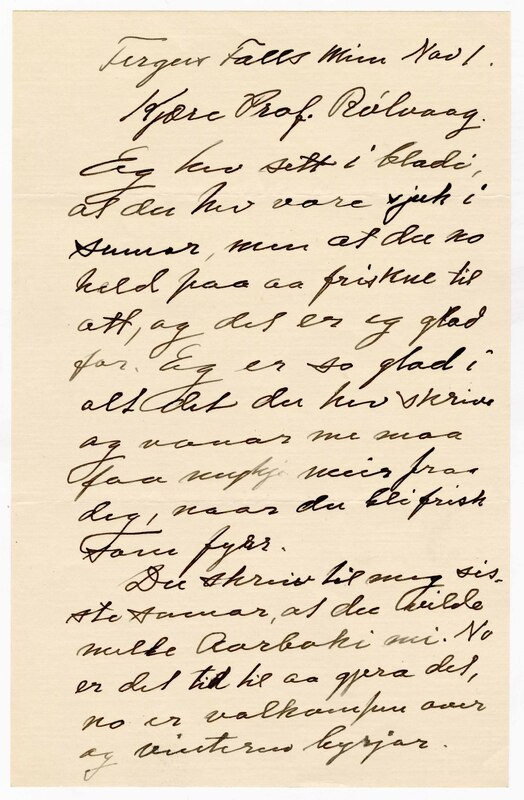 Fergus Falls Minn Nov 1.
Kjære Prof. Rölvaag.
Eg hev sett i bladi,
at du hev vore sjuk i
sumar, men at du no
held paa aa friskne til
att, og det er eg glad
for. Eg er so glad i
alt det du hev skrive
og vonar me maa
faa mykje meir fraa
deg, naar du bli frisk
som fyrr.
Du skreiv til meg sis-
ste sumar, at du vilde
melde Aarboki mi. No
er det tid til aa gjera det,
no er valkampen over
og vinteren byrjar.